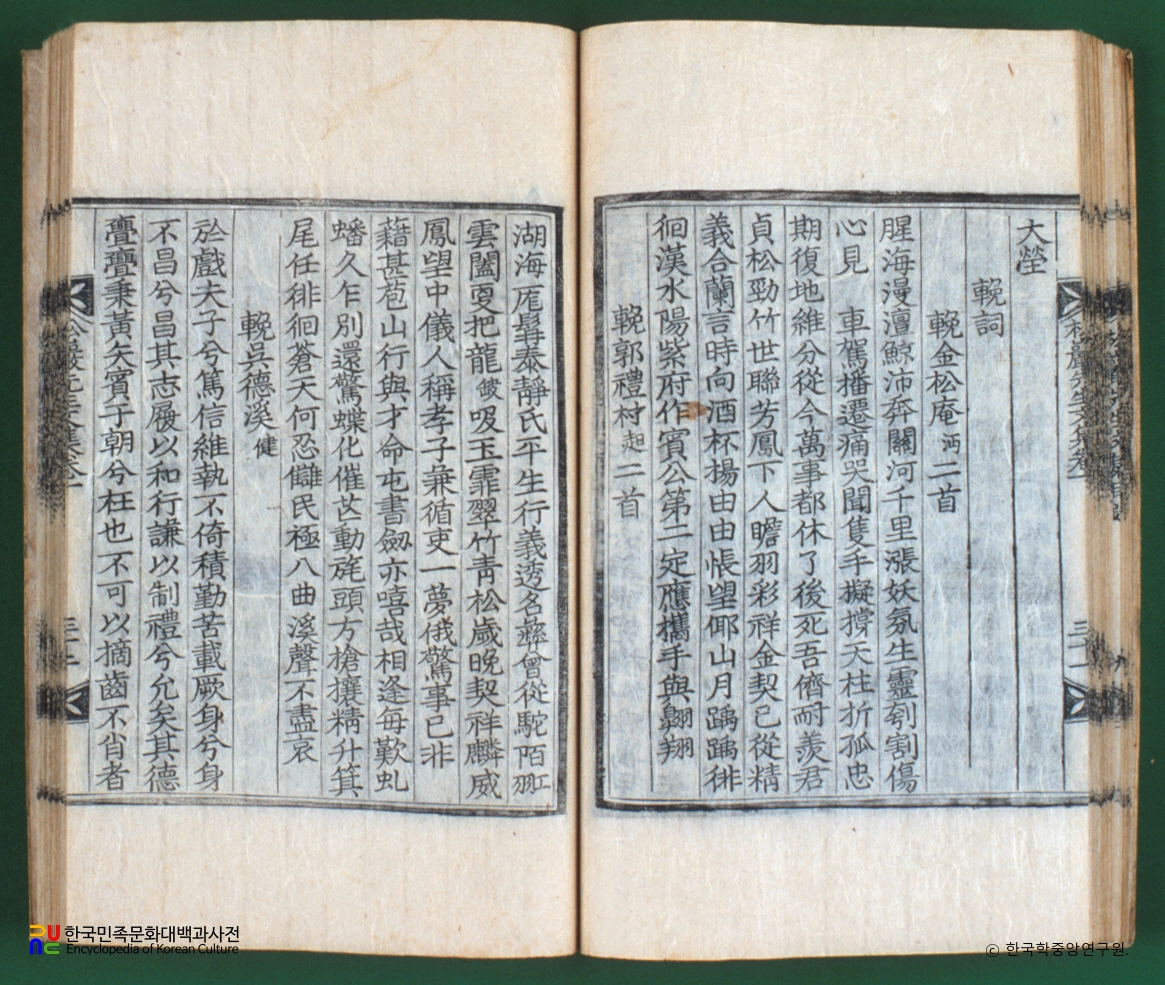 大瑩
輓詞
輓金松庵 沔 二首
腥海漫澶鯨沛奔關河千里漲妖氛生靈刳割傷
心見 車駕播遷痛哭聞隻手擬撐天柱折孤忠
期復地維分從今萬事都休了後死吾儕耐羨君
貞松勁竹世聯芳鳳下人瞻羽彩祥金契已從精
義合蘭言時向酒杯揚由由悵望倻山月踽踽徘
徊漢水陽紫府作賓公第二定應攜手與翺翔
輓郭禮村 䞘 二首
湖海厖髯泰靜氏平生行義透名彝曾從駝陌
雲闔更把龍 吸玉霏翠竹靑松歲晚契祥麟威
鳳望中儀人稱孝子兼循吏一夢俄驚事已非
藉甚苞山行與才命屯書劒亦嘻哉相逢每歎虬
蟠久乍別還驚蝶化催芒動旄頭方搶攘精升箕
尾任徘徊蒼天何忍讎民極八曲溪聲不盡哀
輓吳德溪 健
於戲夫子兮篤信維執不倚積勤苦載厥身兮身
不昌兮昌其志履以和行謙以制禮兮允矣其德
亹亹秉黃矢賓于朝兮枉也不可以摘齒不肖者
松巖先生文集卷一
三十一
한국민족문화대백과사전
Encyclopedia of Korean Culture
© 한국학중앙연구원.